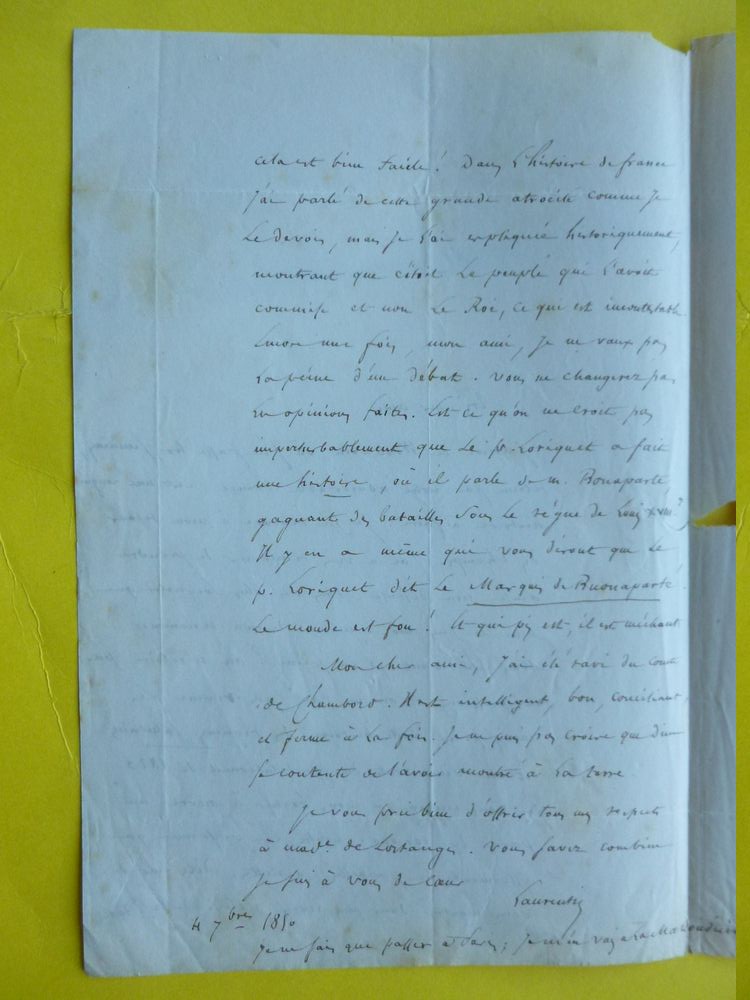 cela est bien facile! Dans l'histoire de france
j'ai parlé de cette grande atrocité comme je
le devois, mais je l'ai expliquée historiquement,
montrant que c'étoit le peuple qui l'avoit
commise et non le Roi, ce qui est incontestable.
Encore une fois, mon ami, je ne vaux pas
la peine d'un débat. Vous ne changerez pas
les opinions faites. Est ce qu'on ne croit pas
imperturbablement que le p. Loriquet a fait
une histoire, où il parle de m. Bonaparte
gagnant des batailles sous le règne de Louis XVIII?
Il y en a même qui vous diront que le
p. Loriquet dit le Marquis de Buonaparte!
Le monde est fou! Et qui pis est, il est méchant
Mon cher ami, j'ai été ravi du comte
de Chambord. Il est intelligent, bon, conciliant,
et ferme à la fois. Je ne puis pas croire que dieu
se contente de l'avoir montré à la terre
Je vous prie bien d'offrir tous mes respects
à made. de Lostanges. Vous savez combien
je suis à vous de cœur
Laurentie
4 7bre 1850
Je ne fais que passer à Paris; je m'en vais